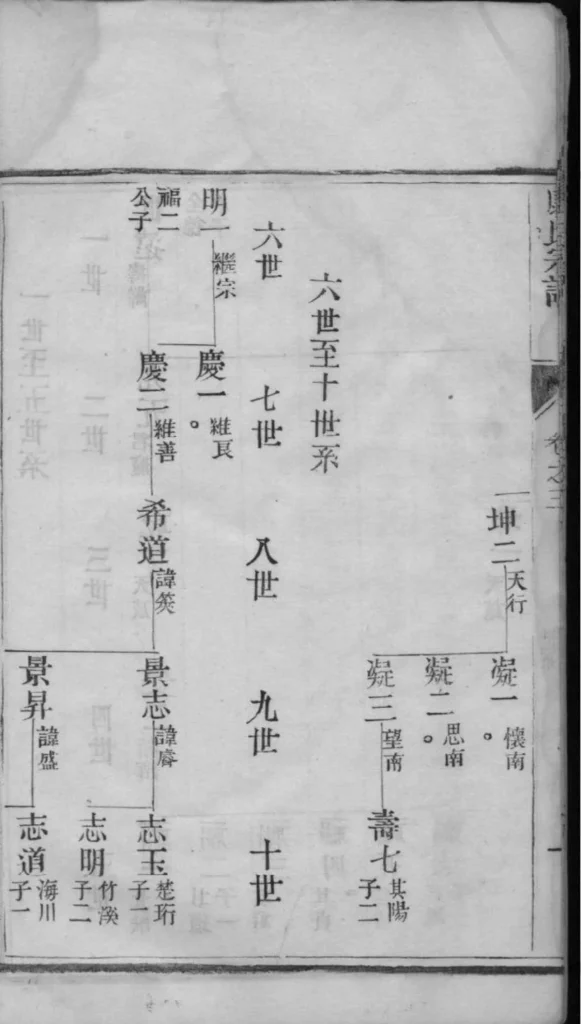 氏宗譜
卷之三
一
坤二 天行
凝一 懷南
凝二 思南
凝三 望南
壽七 其陽 子二
六世至十世系
六世
七世
八世
九世
十世
明一 繼宗
福二公子
慶一 維良
慶二 維善
希道 諱筴
景志 諱睿
景昇 諱盛
志玉 楚珩 子一
志明 竹溪 子二
志道 海川 子一